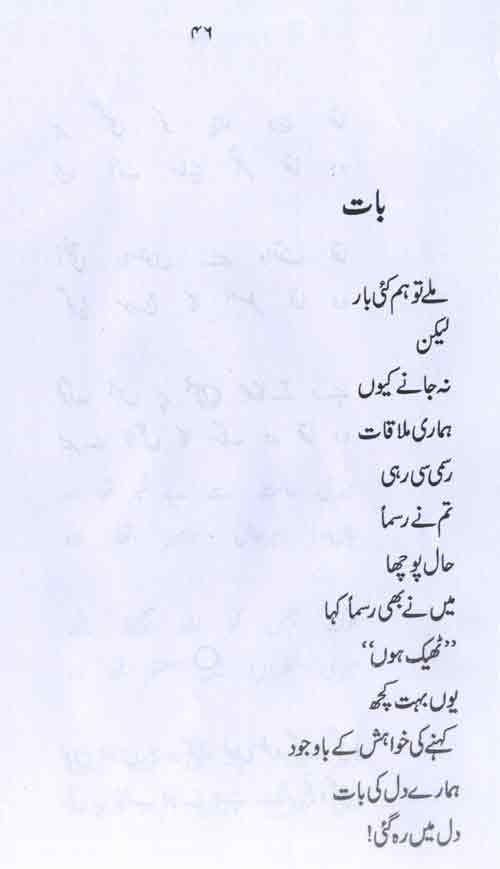 ۴۶
بات
ملے تو ہم کئی بار
لیکن
نہ جانے کیوں
ہماری ملاقات
رسمی سی رہی
تم نے رسماً
حال پوچھا
میں نے بھی رسماً کہا
”ٹھیک ہوں“
یوں بہت کچھ
کہنے کی خواہش کے باوجود
ہمارے دل کی بات
دل میں رہ گئی!